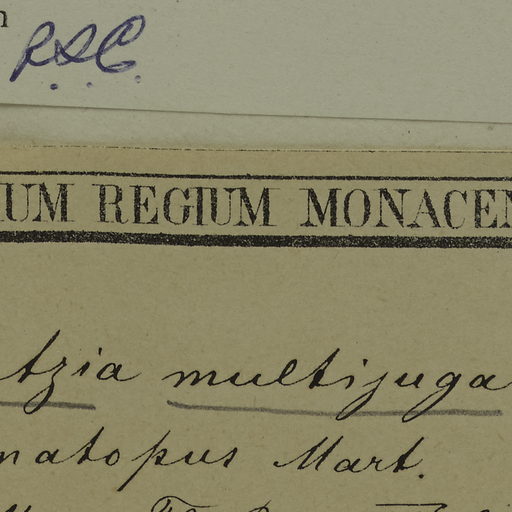 n
R.S.C.
IUM REGIUM MONACEN
tzia multijuga
matopus Mart.